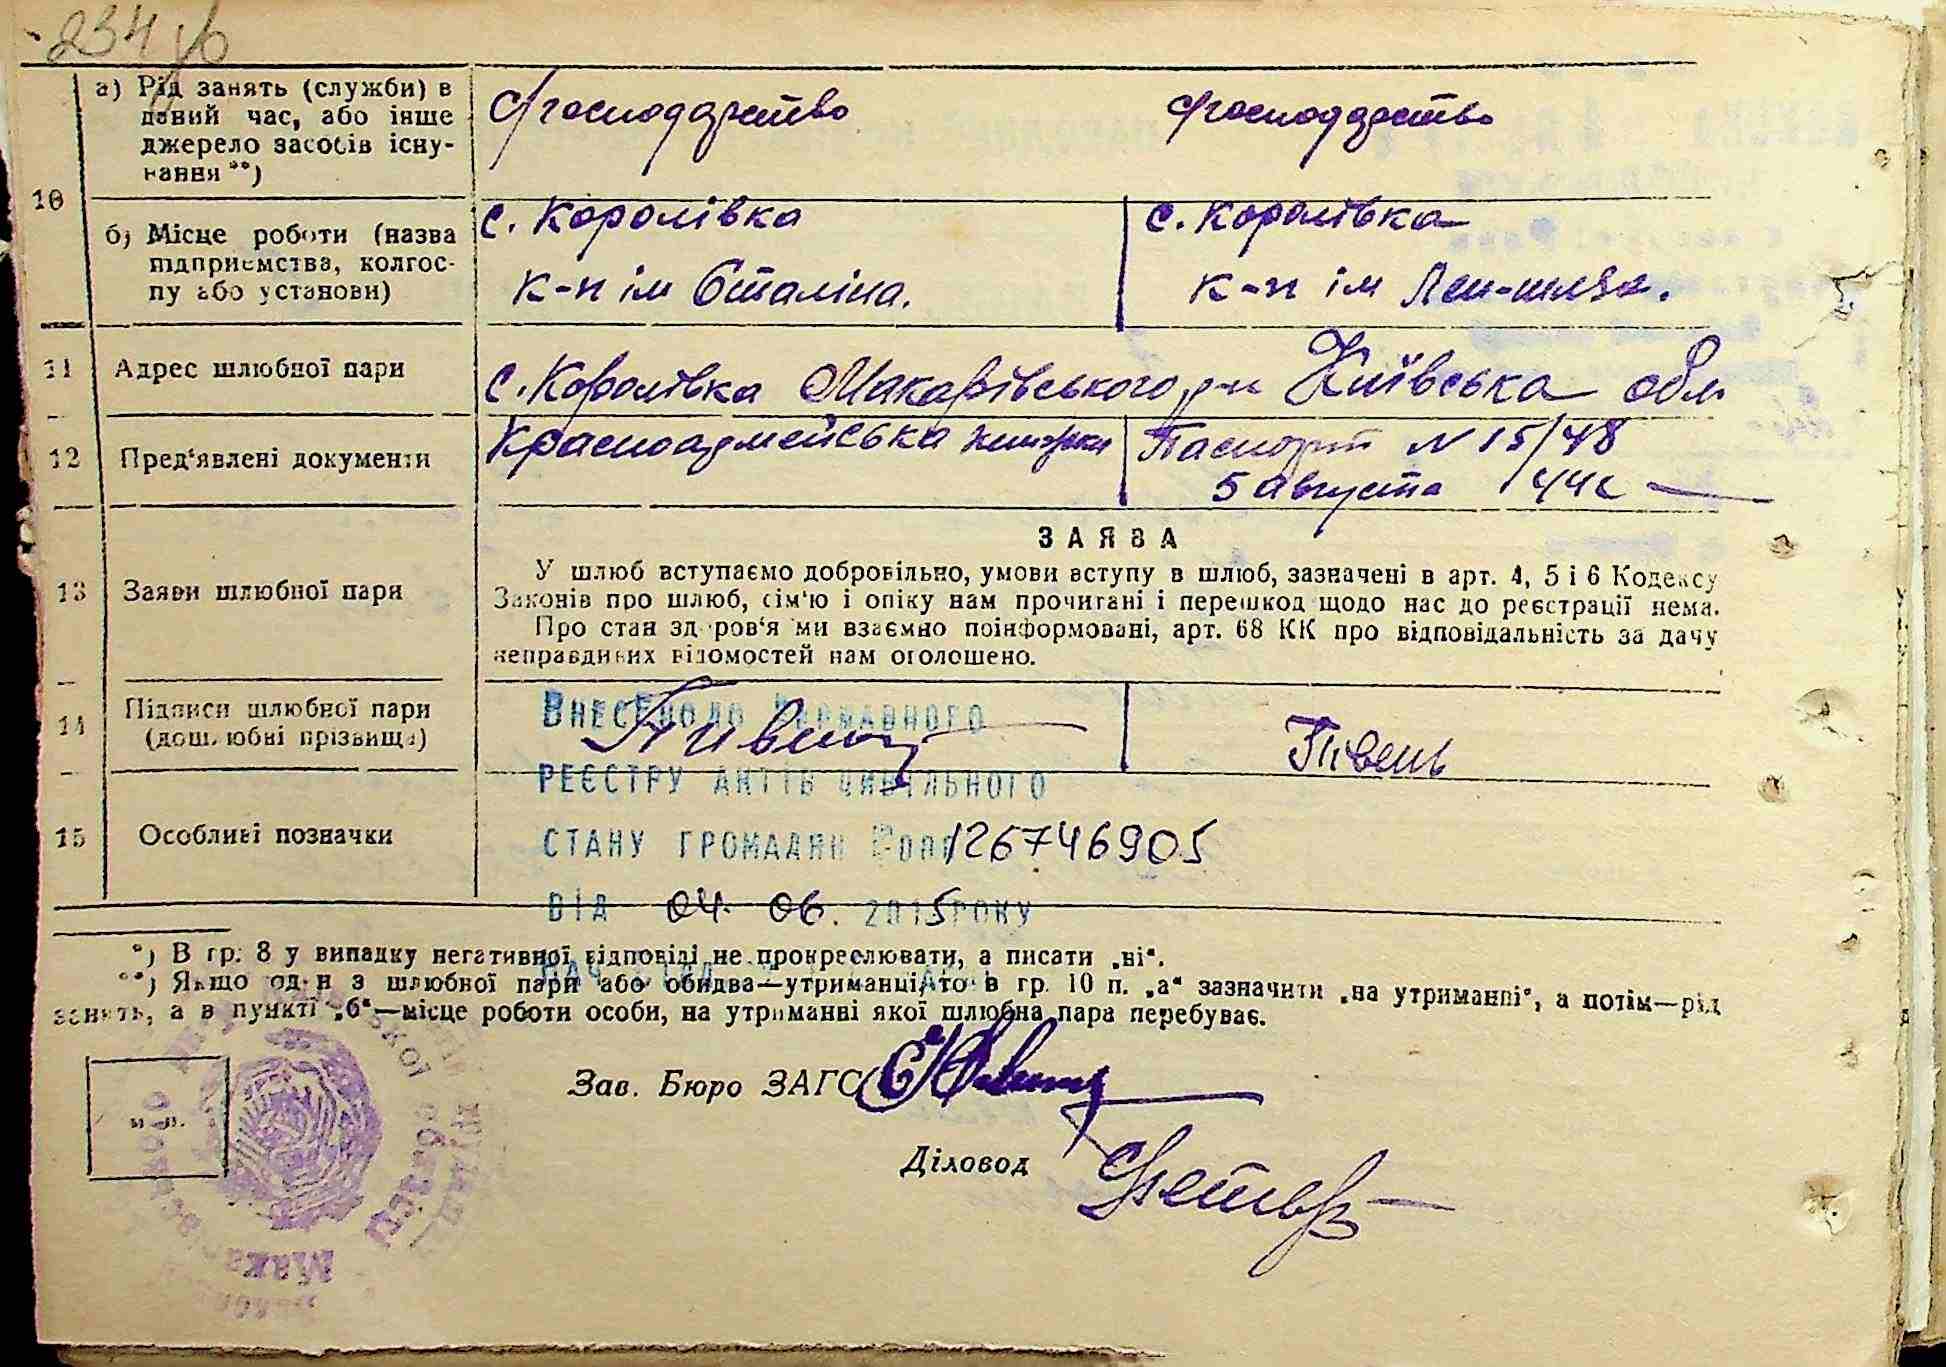 234
10
а) Рід занять (служби) в
даний час, або інше
джерело засобів існу-
вання **)
с/господарство
с/господарство
б) Місце роботи (назва
підприємства, колгос-
пу або установи)
с. Королівка
к-п ім Сталіна.
с. Королівка
к-п ім
11
Адрес шлюбної пари
с. Королівка Макарівського р-н Київська обл
12
Пред'явлені документи
Красноадмейська книжка
Паспорт N 15/48
5 августа 44
13
Заяви шлюбної пари
ЗАЯВА
У шлюб вступаємо добровільно, умови вступу в шлюб, зазначені в арт. 4, 5 і 6 Кодексу
Законів про шлюб, сім'ю і опіку нам прочитані і перешкод щодо нас до реєстрації нема.
Про стан здоров'я ми взаємно поінформовані, арт. 68 КК про відповідальність за дачу
неправдивих відомостей нам оголошено.
14
Підписи шлюбної пари
(дошлюбні прізвища)
Півень
Внесено до Державного
реєстру актів цивільного
стану громадян 126746905
від 04. 06. 2015 року
15
Особливі позначки
*) В гр. 8 у випадку негативної відповіді не прокреслювати, а писати „ні“.
**) Якщо один з шлюбної пари або обидва—утриманці, то в гр. 10 п. „а“ зазначити „на утриманні“, а потім—рід
занять, а в пункті „б“—місце роботи особи, на утриманні якої шлюбна пара перебуває.
Зав. Бюро ЗАГС
Діловод
м. п.